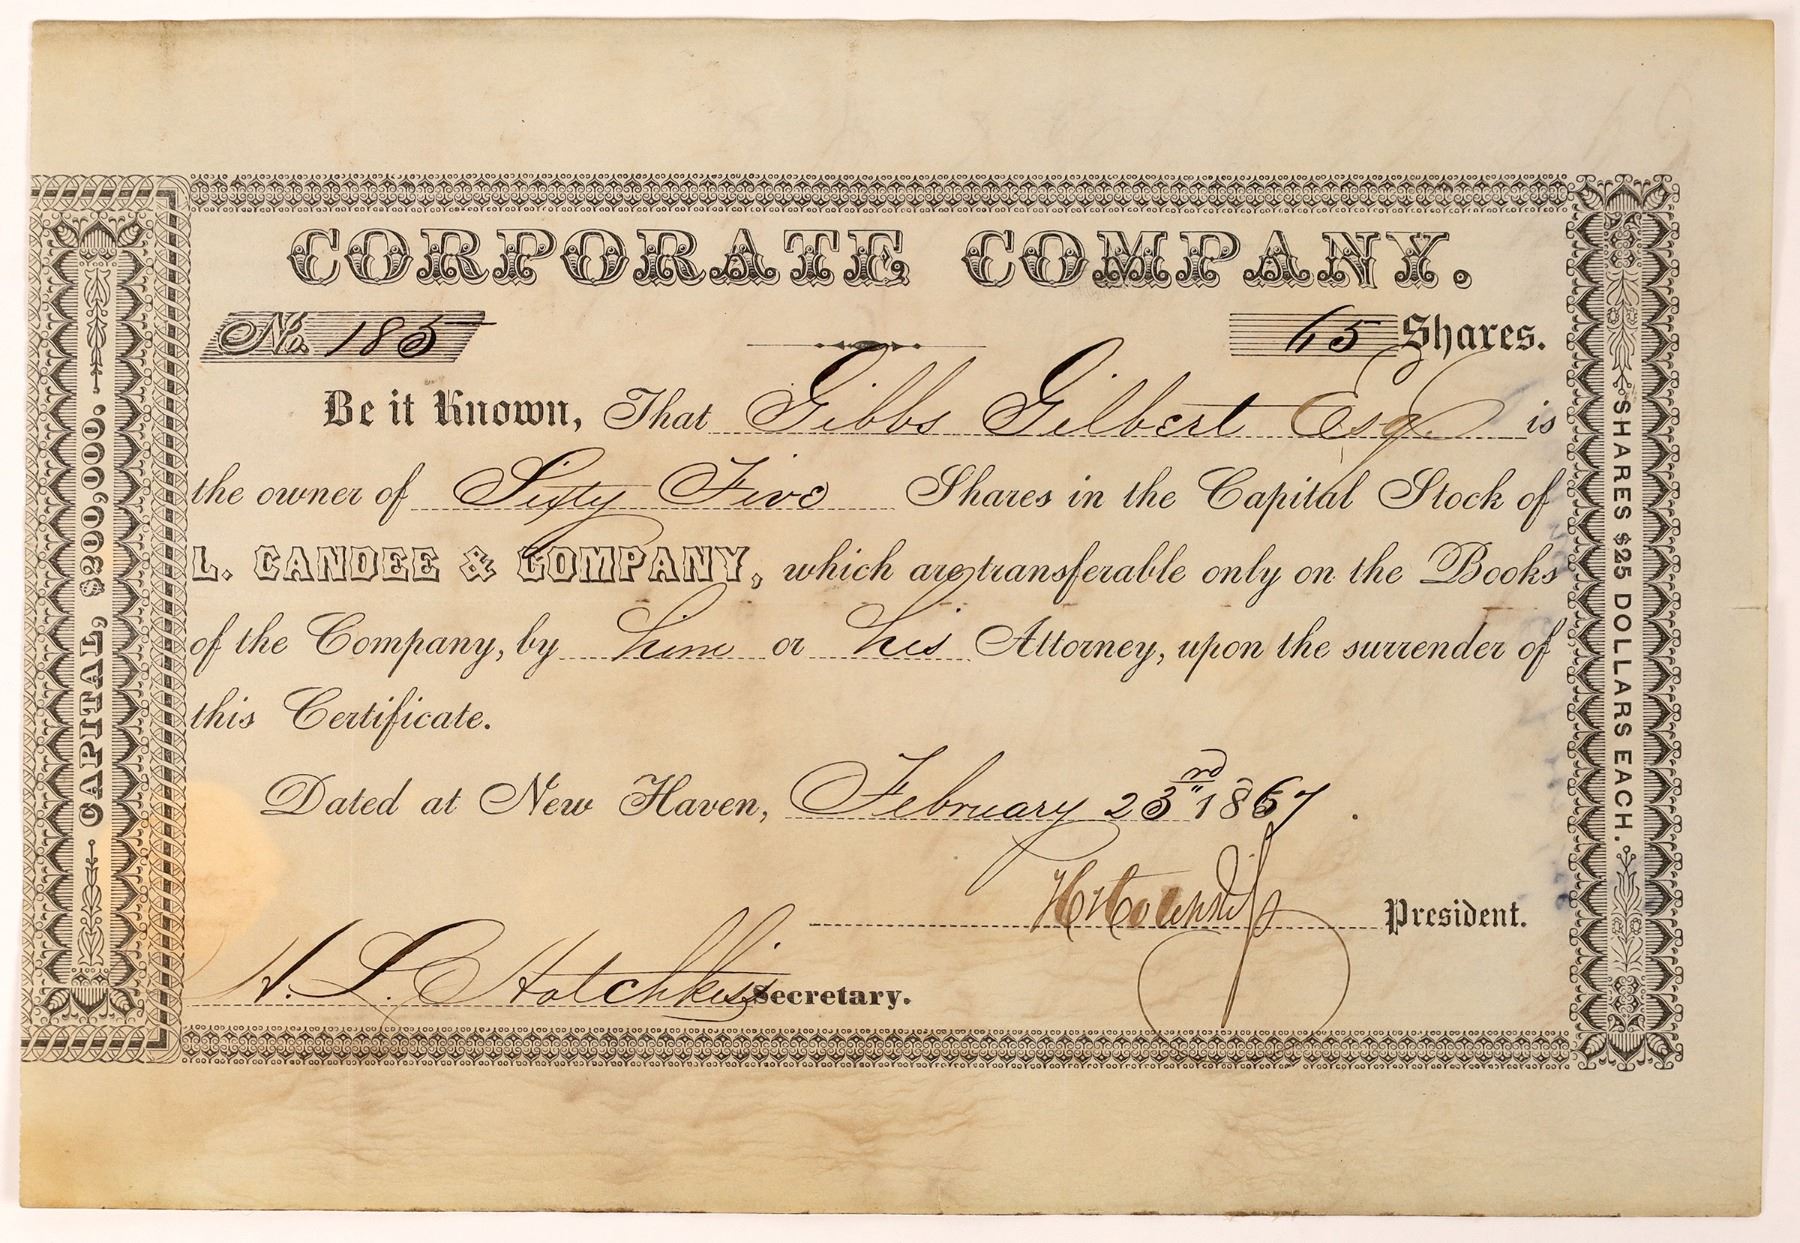 CORPORATE COMPANY.
No. 185
65 Shares.
Be it Known, That Gibbs Gilbert Esq. is
the owner of Sixty Five Shares in the Capital Stock of
L. CANDEE & COMPANY, which are transferable only on the Books
of the Company, by him or his Attorney, upon the surrender of
this Certificate.
Dated at New Haven, February 23rd 1867.
H Hotchkiss President.
H. L. Hotchkiss Secretary.
CAPITAL, $200,000.
SHARES $25 DOLLARS EACH.